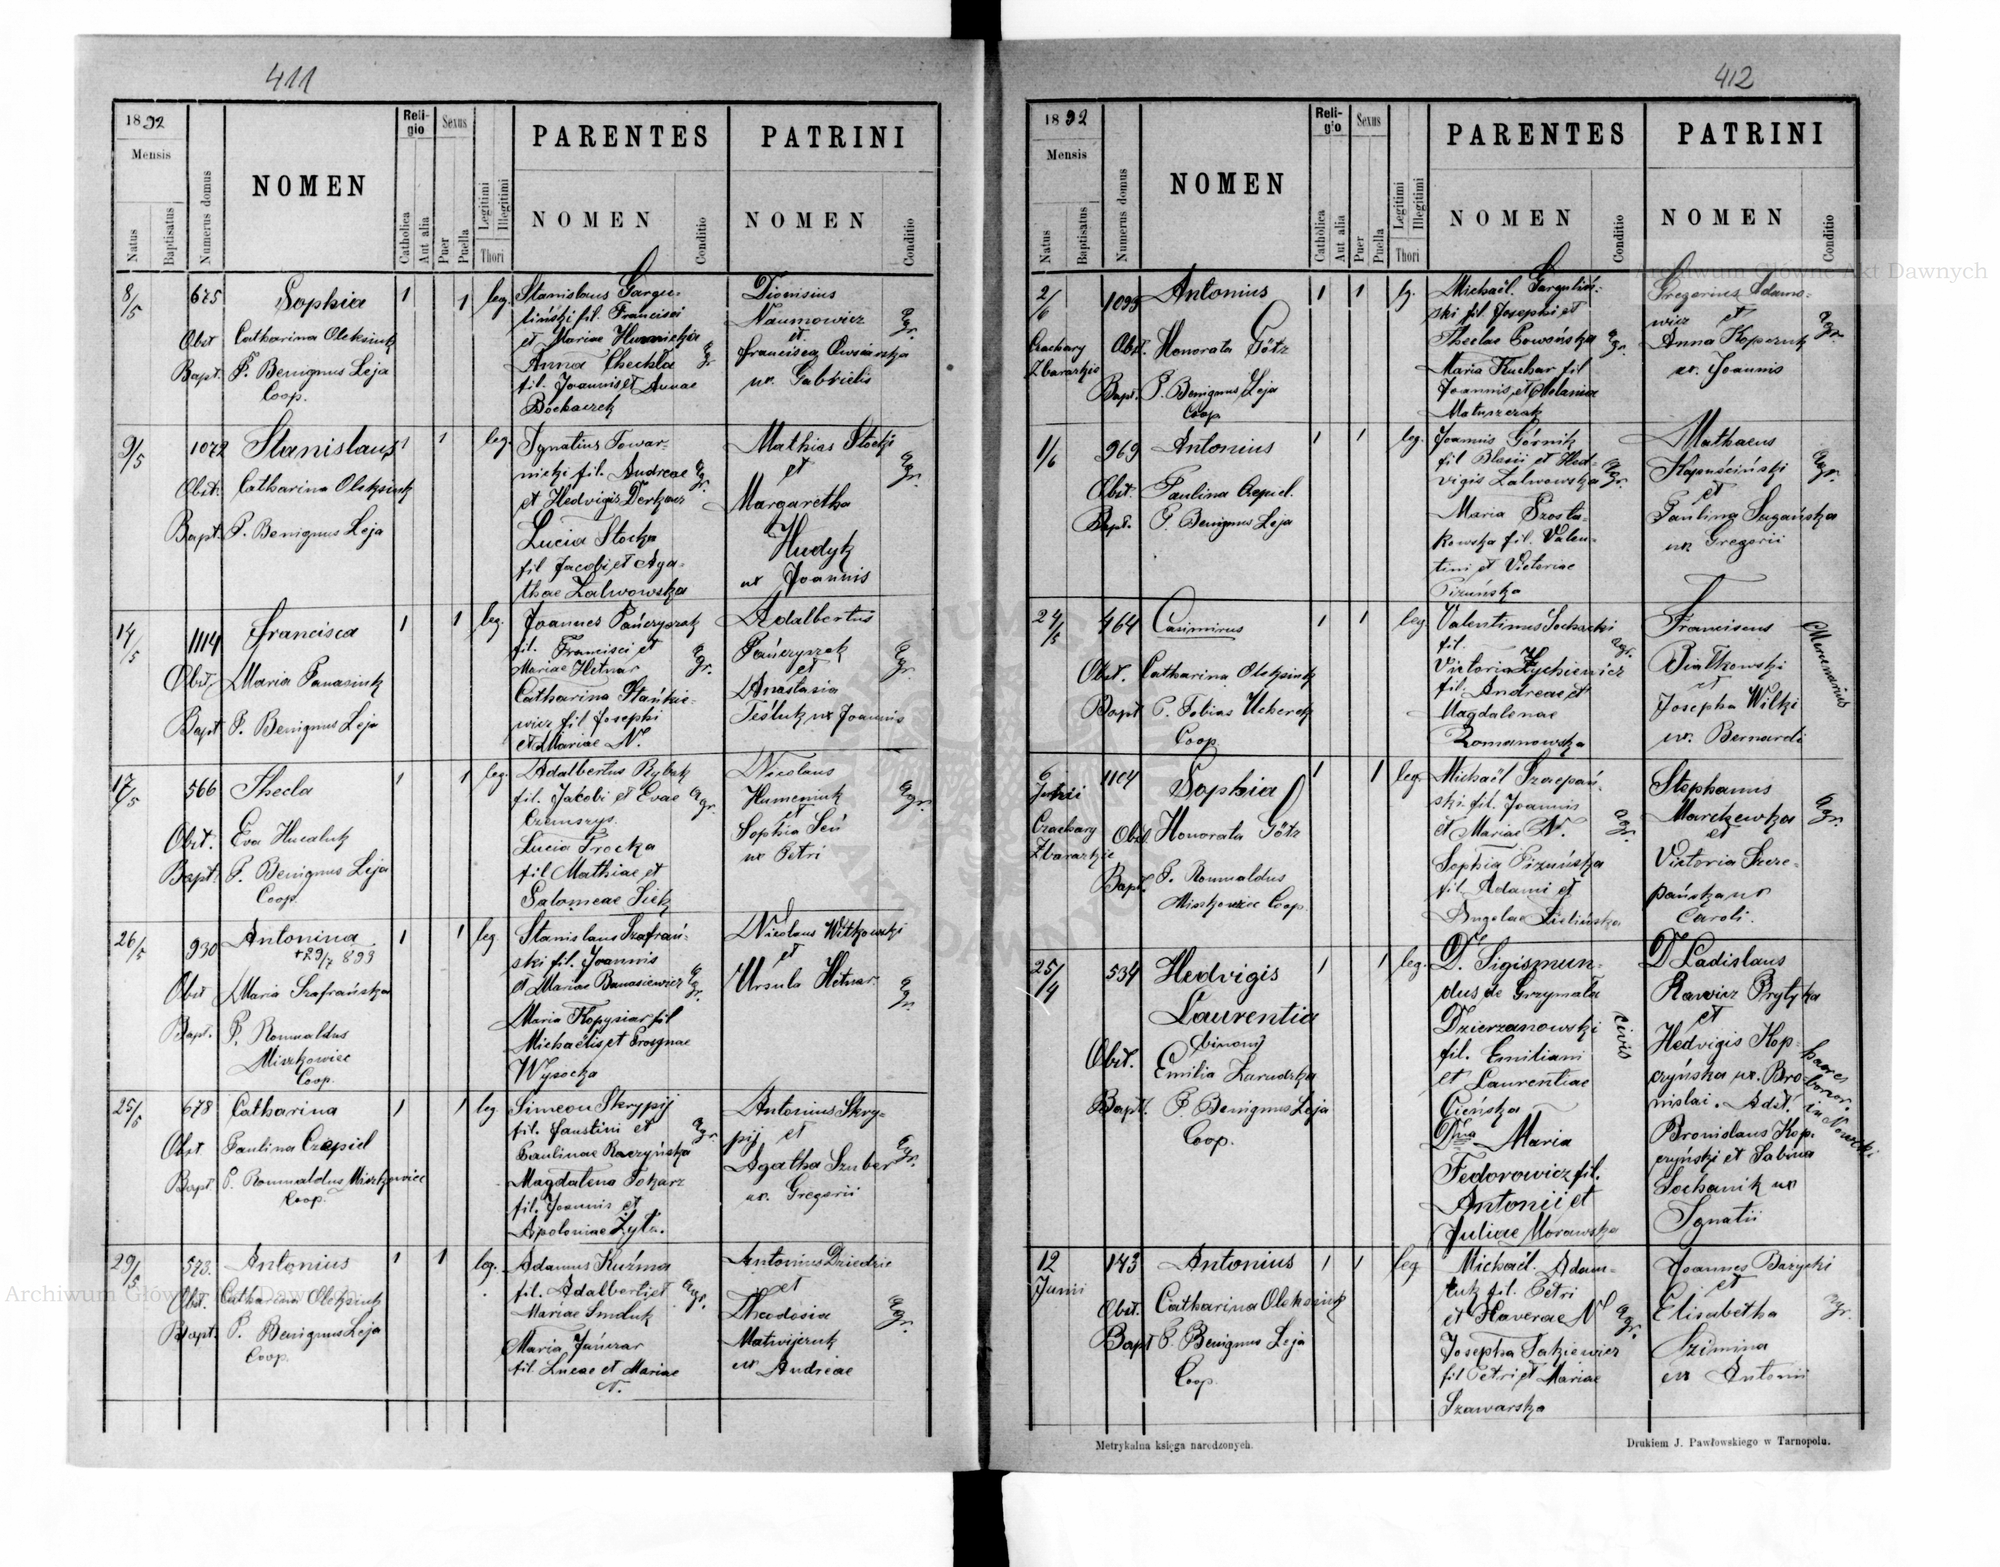 411
1892
Mensis
Natus
Baptisatus
Numerus domus
NOMEN
Religio
Catholica
Aut alia
Sexus
Puer
Puella
Legitimi
Illegitimi
Thori
PARENTES
NOMEN
Conditio
PATRINI
NOMEN
Conditio
8/5 675 Sophia 1 1 leg. Stanislaus Gargu- Dionisius
liński fil. Francisci Naumowicz agr.
Obst Catharina Oleksiuk et Mariae et
Anna Chechła agr. Francisca
Bapt. P. Benignus Leja fil. Joannis et Annae ux. Gabrielis
Coop.
9/5 1072 Stanislaus 1 1 leg. Ignatius Towar- Mathias Stocki
nicki fil. Andreae agr. et agr.
Obst. Catharina Oleksiuk et Hedvigis Derkacz Margaretha
Bapt. P. Benignus Leja Lucia Stocka Hudyk
fil Jacobi et Aga- ux Joannis
thae Zalwowska
14/5 1114 Francisca 1 1 leg. Joannes Pańczyszak Adalbertus
fil. Francisci et Pańczyszak
Obst. Maria Panasiuk Mariae Hetnar agr. et agr.
Catharina Stańkie- Anastasia
Bapt P. Benignus Leja wicz fil Josephi Teśluk ux Joannis
et Mariae N.
17/5 566 Thecla 1 1 leg. Adalbertus Rybak Nicolaus
fil. Jakobi et Evae agr. Humeniuk agr.
et
Obst. Eva Hucaluk Lucia Trocka Sophia Seń
Bapt. P. Benignus Leja fil Mathiae et ux Petri
Coop. Salomeae Siek
26/5 930 Antonina 1 1 leg Stanislaus Szafrań- Nicolaus Witkowski
+29/7 893 ski fil. Joannis et
Obst Maria Szafrańska et Mariae Banasiewicz agr. Ursula Hetnar agr.
Bapt. P. Romualdus Maria Kopysiar fil
Miszkowiec Michaelis et
Coop. Wysocka
25/5 678 Catharina 1 1 leg Simeon Skrypij Antonius Skry-
fil. Faustini et agr. pij et
Obst Paulina Czepiel Paulinae Raczyńska Agatha Szuber agr.
Bapt. P. Romualdus Miszkowiec Magdalena Tokarz ux. Gregorii
Coop. fil. Joannis et
Apoloniae Żyła.
29/5 573. Antonius 1 1 leg. Adamus Kuźma Antonius Dziedzic
fil. Adalberti et agr. et
Obst. Catharina Oleksiuk Mariae Smoluk Theodosia agr.
Bapt. P. Benignus Leja Maria Jańczar Matwijczuk
Coop. fil. Lucae et Mariae ux Andreae
N.
412
1892
Mensis
Natus
Baptisatus
Numerus domus
NOMEN
Religio
Catholica
Aut alia
Sexus
Puer
Puella
Legitimi
Illegitimi
Thori
PARENTES
NOMEN
Conditio
PATRINI
NOMEN
Conditio
2/6 1093 Antonius 1 1 lg. Michaël Garguliń- Gregorius Adamo-
ski fil Josephi et wicz et agr.
Czachary Obst. Honorata Götz Theclae agr. Anna Kopczuk
Zbarazkie Maria Kuchar fil ux. Joannis
Bapt. P. Benignus Leja Joannis et Melania
Coop Matuszczak
1/6 969 Antonius 1 1 leg. Joannis Górnik Mathaeus
fil Blasii et Hed- Kopuściński agr.
Obst. Paulina Czepiel. vigis Zalwowska agr. et
Bapt. P. Benignus Leja Maria Szosta- Paulina Sugańska
kowska fil. Valen- ux Gregorii
tini et Victoriae
Pizuńska
24/5 464 Casimirus 1 1 leg Valentinus Sochacki Franciscus
fil. agr. Piatkowski
Obst. Catharina Oleksiuk Victoria Zychiewicz et
fil. Andreae et Josepha Wilki
Bapt P. Tobias Magdalenae ux. Bernardi
Coop. Romanowska
6 1104 Sophia 1 1 leg. Michaël Szczepań- Stephanus
ski fil. Joannis Marckewka agr.
Czachary Obst. Honorata Götz et Mariae N. agr. et
Zbarazkie Sophia Pizuńska Victoria Szcze-
Bapt. P. Romualdus fil. Adami et pańska ux
Miszkowiec Coop. Angelae Caroli.
25/4 534 Hedvigis 1 1 leg. D. Sigismun- D Ladislaus
Laurentia dus de Grzymała Rawicz Prytyka
binom Dzierzanowski civis et
Obst. Emilia Zarudzka fil. Emiliani Hedvigis Kop-
et Laurentiae czyńska ux. Bro- haeres
Bapt. P. Benignus Leja Cieńska nislai. Adst. bonor.
Coop. Dna Maria Bronislaus Kop.
Fedorowicz fil. czyński et Sabina
Antonii et Sochanik ux
Juliae Morawska Ignatii
12 143 Antonius 1 1 leg Michaël Adam- Joannes Bażycki
Junii czuk fil. Petri et
Obst. Catharina Oleksiuk et Xaverae N agr. Elisabetha agr.
Bapt P. Benignus Leja Josepha Sakiewicz Szimina
Coop. fil Petri et Mariae ux Antonii
Szawarska
Metrykalna księga narodzonych.
Drukiem J. Pawłowskiego w Tarnopolu.
Archiwum Główne Akt Dawnych
Archiwum Główne Akt Dawnych